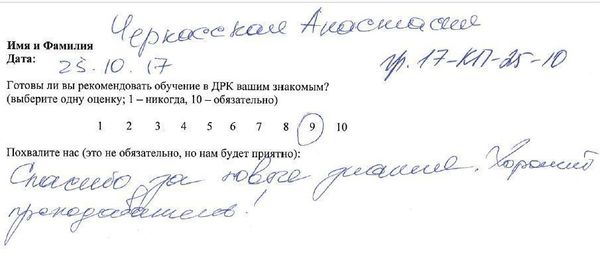 Черкасская Анастасия
Имя и Фамилия
Дата: 25.10.17 гр. 17-КП-25-10
Готовы ли вы рекомендовать обучение в ДРК вашим знакомым?
(выберите одну оценку; 1 – никогда, 10 – обязательно)
1 2 3 4 5 6 7 8 9 10
Похвалите нас (это не обязательно, но нам будет приятно):
Спасибо за новые знания. Хороший
преподаватель!